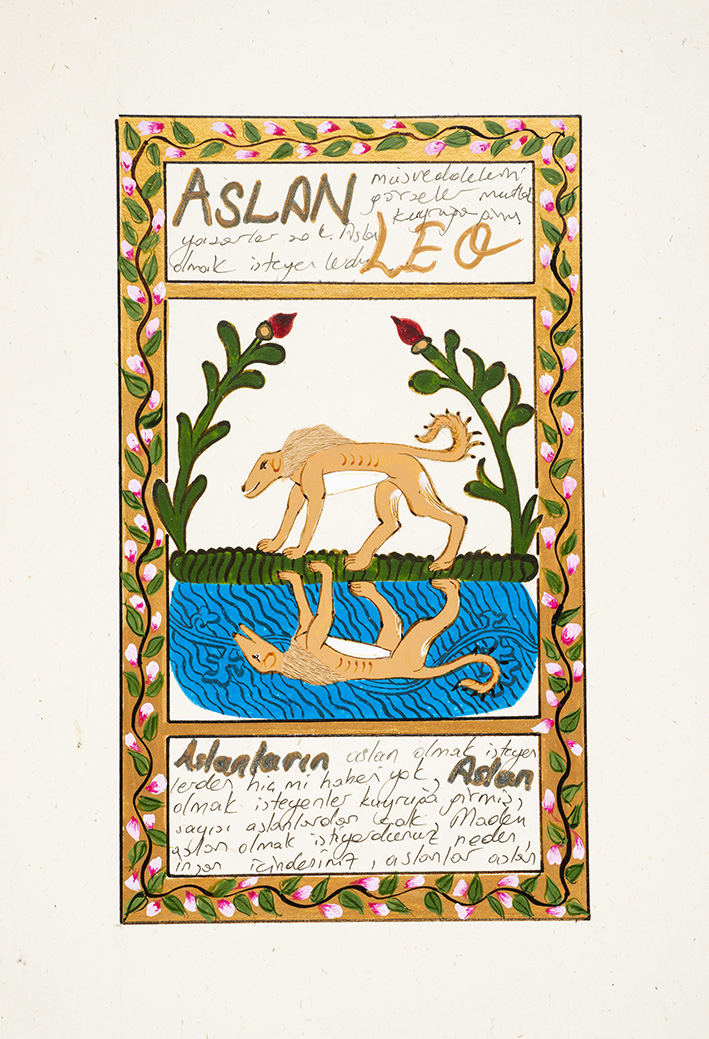 ASLAN
müsveddeleleni
görseler mutla
kuyruğa girip
yazarlar so
olmak isteyenlerdu
LEO
Aslanların aslan olmak isteyen
lerden hiç mi haberi yok, Aslan
olmak isteyenler kuyruğa girmiş,
sayısı aslanlardan çok. Madem
aslan olmak istiyordunuz neden,
insan içindesiniz, aslanlar aslan